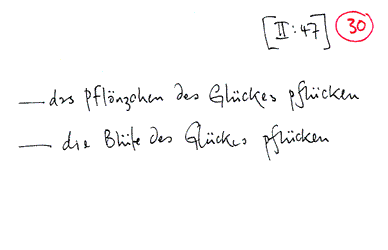 [II:47] 30
— das Pflänzchen des Glückes pflücken
— die Blüte des Glückes pflücken